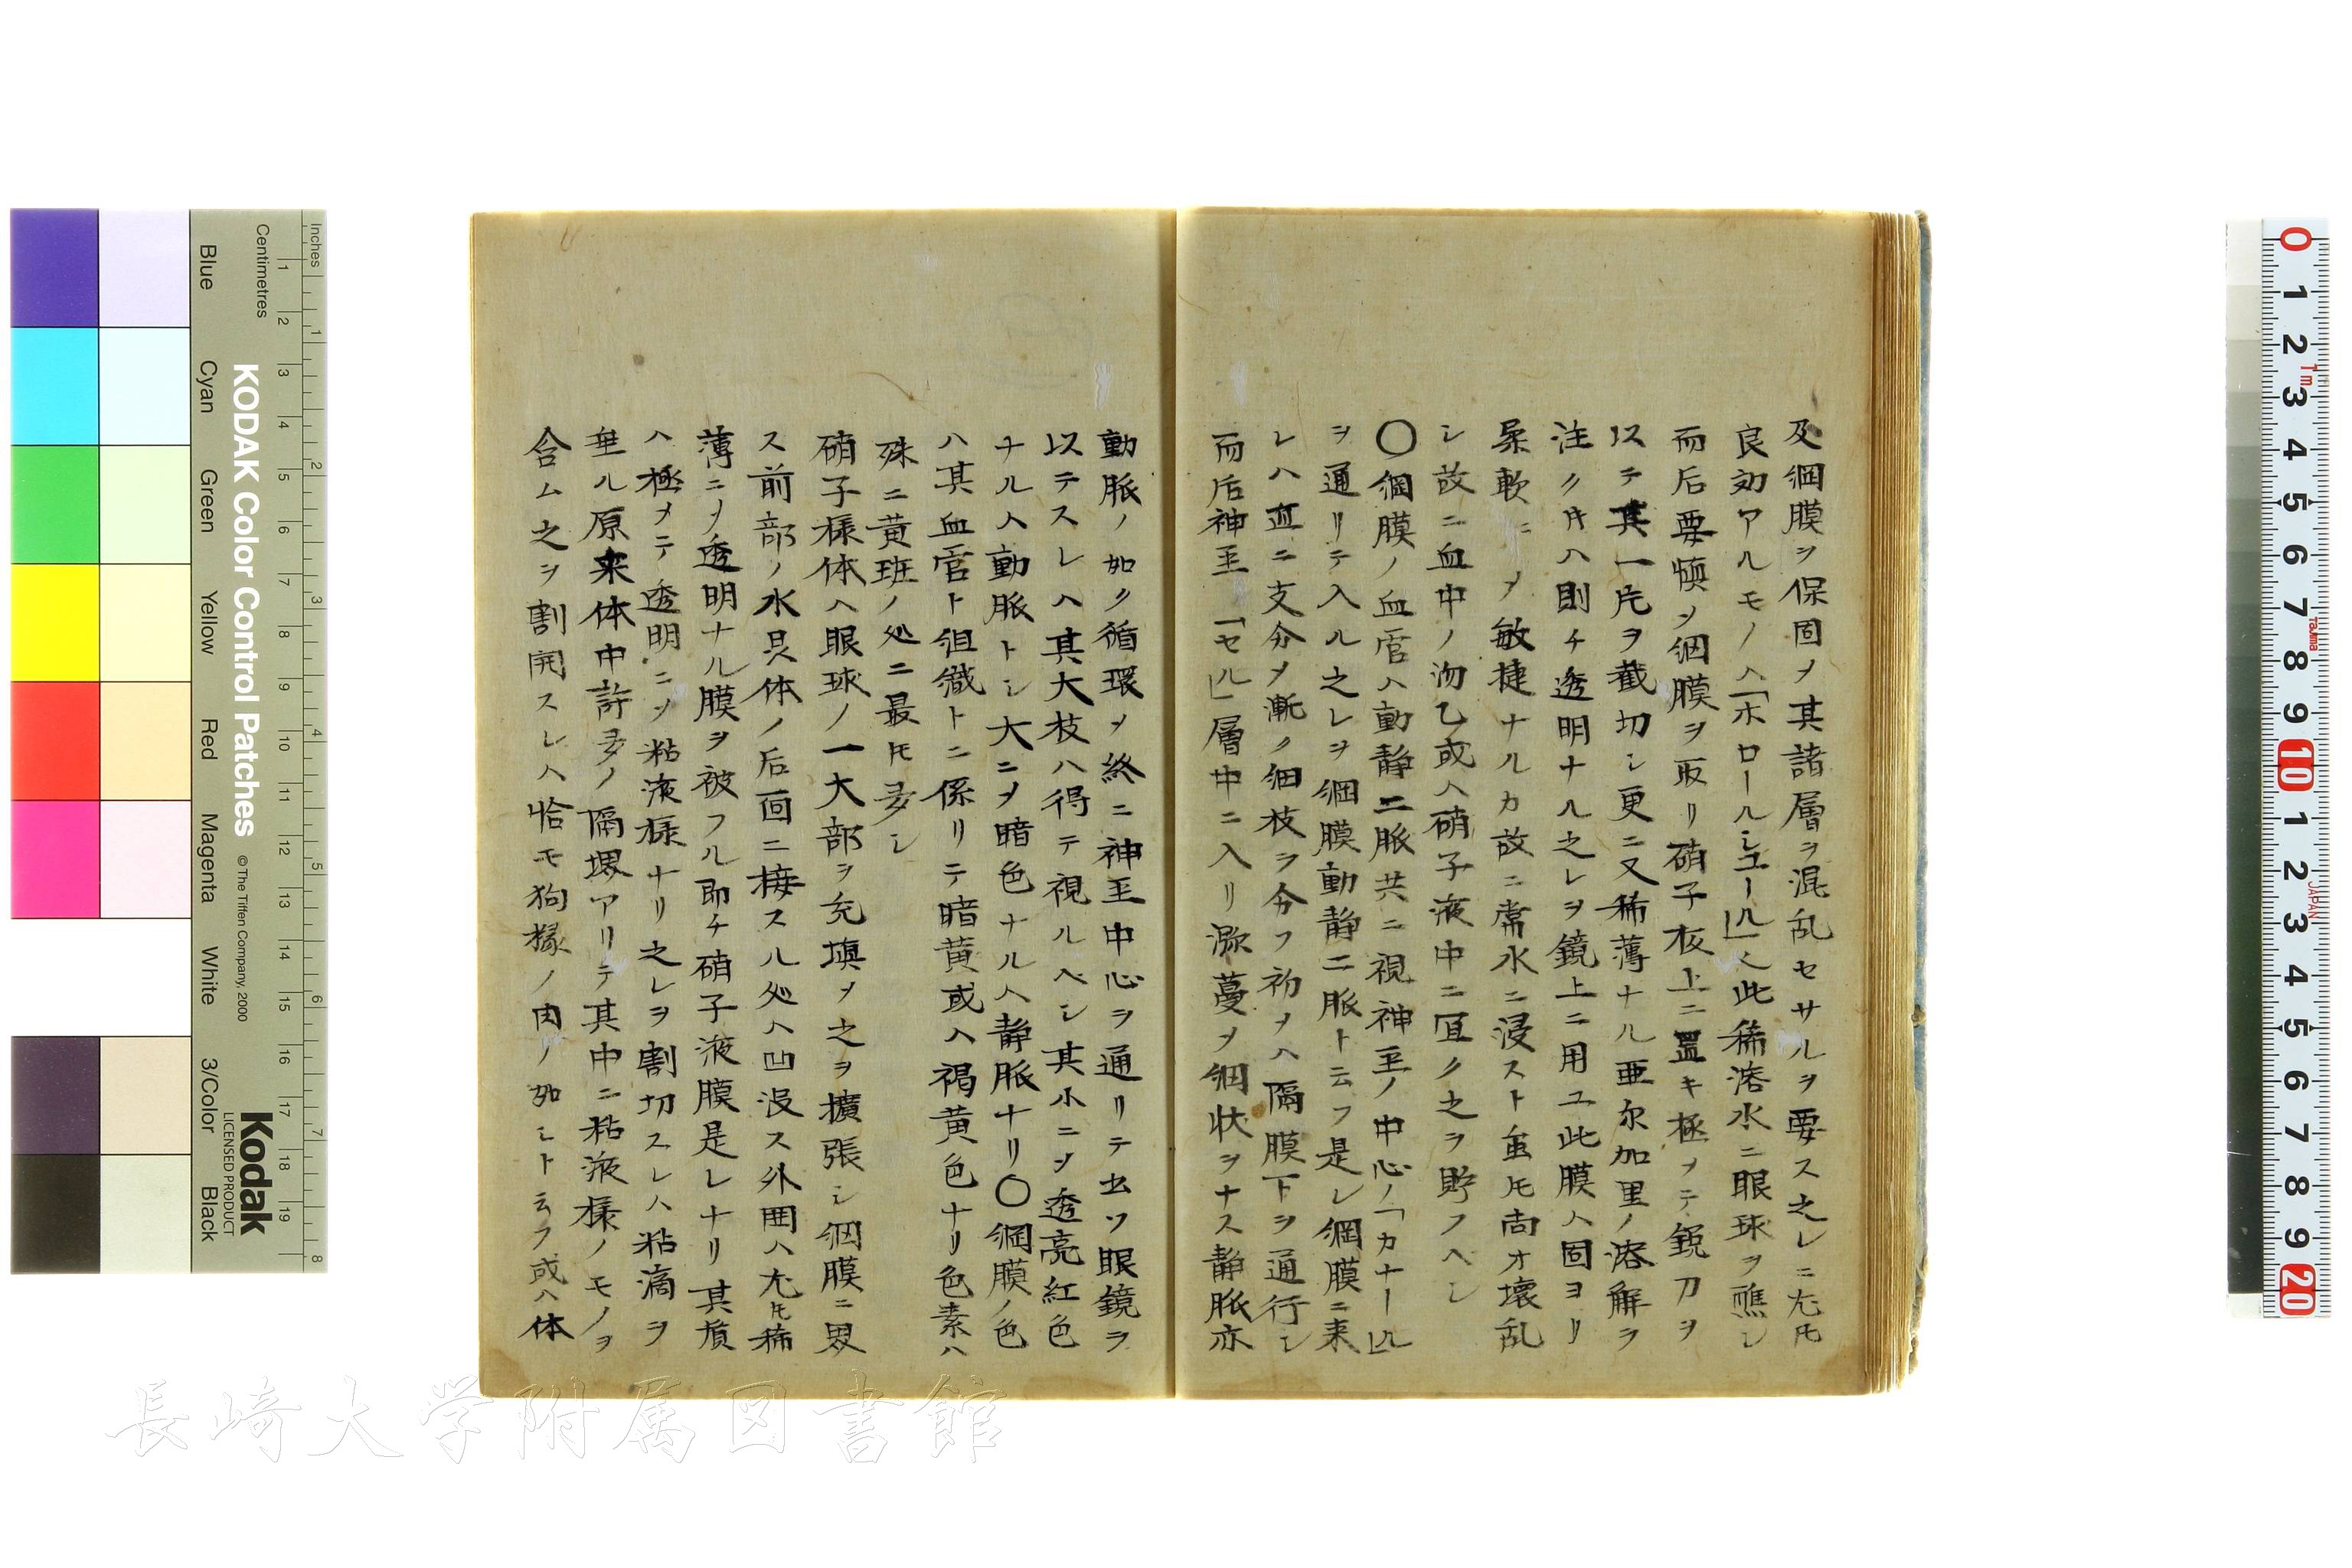 及網膜ヲ保固メ其諸層ヲ混乱セサルヲ要ス之レニ尤モ
良効アルモノハ「ホロールシユール」ノ此稀溶水ニ眼球ヲ醮シ
而后要慎メ網膜ヲ取リ硝子板上ニ置キ極メテ鋭刀ヲ
以テ其一片ヲ截切シ更ニ又稀薄ナル亜尓加里ノ溶解ヲ
注クキハ則チ透明ナル之レヲ鏡上ニ用ユ此膜ハ固ヨリ
柔軟ニメ敏捷ナルカ故ニ常水ニ浸スト虽モ尚オ壊乱
シ故ニ血中ノ沕乙或ハ硝子液中ニ冝ク之ヲ貯フヘシ
〇網膜ノ血管ハ動静二脈共ニ視神圣ノ中心ノ「カナール」
ヲ通リテ入ル之レヲ網膜動静二脈ト云フ是レ網膜ニ来
レハ直ニ支分メ漸ク細枝ヲ分フ初メハ隔膜下ヲ通行シ
而后神圣「セル」層中ニ入リ瀰蔓メ網状ヲナス静脈亦
動脈ノ如ク循環メ終ニ神圣中心ヲ通リテ出ツ眼鏡ヲ
以テスレハ其大枝ハ得テ視ルヘシ其小ニメ透亮紅色
ナルハ動脈トシ大ニメ暗色ナルハ静脈ナリ〇網膜ノ色
ハ其血管ト組織トニ係リテ暗黄或ハ褐黄色ナリ色素ハ
殊ニ黄斑ノ処ニ最モ多シ
硝子様体ハ眼球ノ一大部ヲ充填メ之ヲ擴張シ網膜ニ界
ス前部ノ水晶体ノ后面ニ接スル処ハ凹没ス外囲ハ尤モ稀
薄ニメ透明ナル膜ヲ被フル即チ硝子液膜是レナリ其質
ハ極メテ透明ニメ粘液様ナリ之レヲ割切スレハ粘滴ヲ
垂ル原来体中許多ノ隔堺アリテ其中ニ粘液様ノモノヲ
含ム之ヲ割開スレハ恰モ狗橼ノ肉ノ如シト云フ或ハ体
長崎大学附属図書館
KODAK Color Control Patches
© The Tiffen Company, 2000
Kodak
LICENSED PRODUCT
Inches
Centimetres
Blue
Cyan
Green
Yellow
Red
Magenta
White
3/Color
Black
1 2 3 4 5 6 7 8 9 10 11 12 13 14 15 16 17 18 19
1 2 3 4 5 6 7 8
0 1 2 3 4 5 6 7 8 9 10 1 2 3 4 5 6 7 8 9 20
1m
Tajima
JAPAN